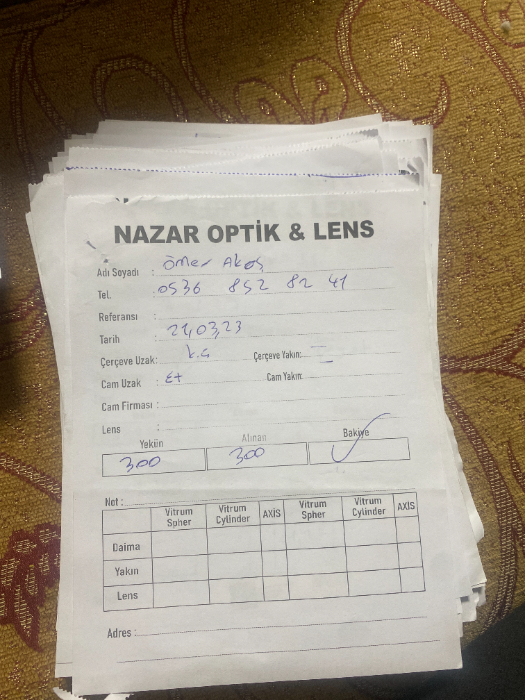 NAZAR OPTİK & LENS
Adı Soyadı : Ömer Akoş
Tel. : 0536 852 82 41
Referansı :
Tarih : 21,03,23
Çerçeve Uzak: k.G Çerçeve Yakın:
Cam Uzak : E+ Cam Yakın:
Cam Firması :
Lens :
Yekün Alınan Bakiye
300 300
Not :
Vitrum Spher Vitrum Cylinder AXİS Vitrum Spher Vitrum Cylinder AXİS
Daima
Yakın
Lens
Adres :